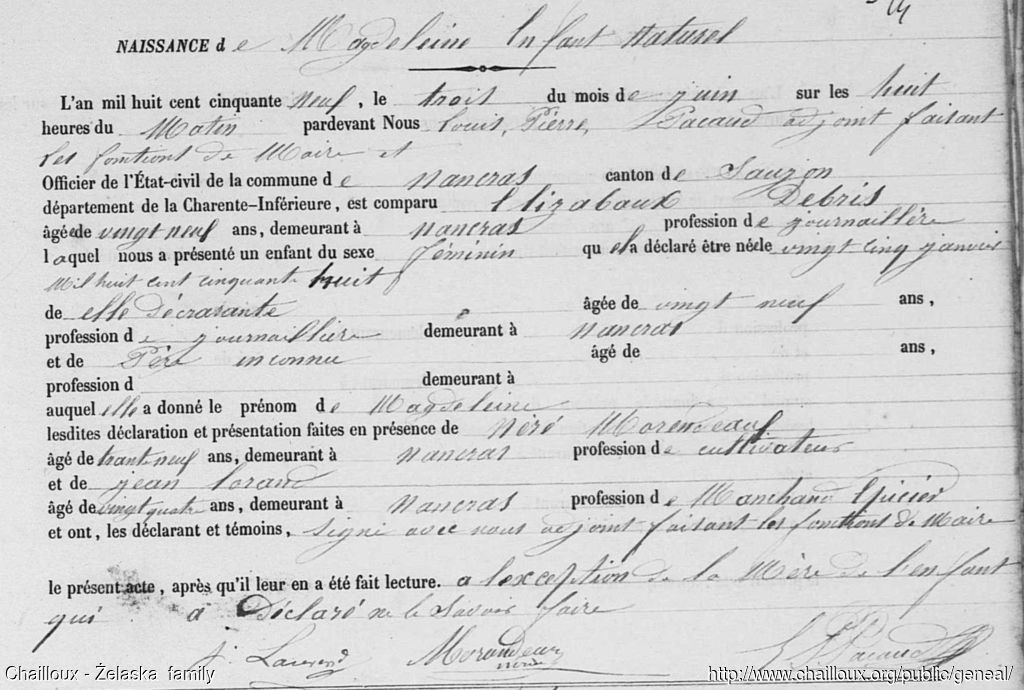 NAISSANCE de Magdeleine Enfant Naturel
L'an mil huit cent cinquante neuf, le trois du mois de juin sur les huit
heures du Matin pardevant Nous Louis, Pierre, Pacaud adjoint faisant
les fonctions de Maire et
Officier de l'État-civil de la commune de Nancras canton de Saujon
département de la Charente-Inférieure, est comparu Elizabaux Debris
âgée de vingt neuf ans, demeurant à Nancras profession de journaillère
laquel nous a présenté un enfant du sexe féminin qu'el a déclaré être née le vingt cinq janvier
Mil huit cent cinquante huit
de elle Décrarante âgée de vingt neuf ans,
profession de journaillière demeurant à Nancras
et de Père inconnu âgé de ans,
profession d demeurant à
auquel elle a donné le prénom de Magdeleine
lesdites déclaration et présentation faites en présence de Néré Morendeau
âgé de trante neuf ans, demeurant à Nancras profession de cultivateur
et de jean lorand
âgé de vingt quatre ans, demeurant à Nancras profession de Marchand Epicier
et ont, les déclarant et témoins, signé avec nous adjoint faisant les fonctions de Maire
le présent acte, après qu'il leur en a été fait lecture. a lexception de la Mère de l'enfant
qui a Déclaré ne le savoir faire
J. Laurend Morandeau Pacaud
Chailloux - Żelaska family http://www.chailloux.org/public/geneal/